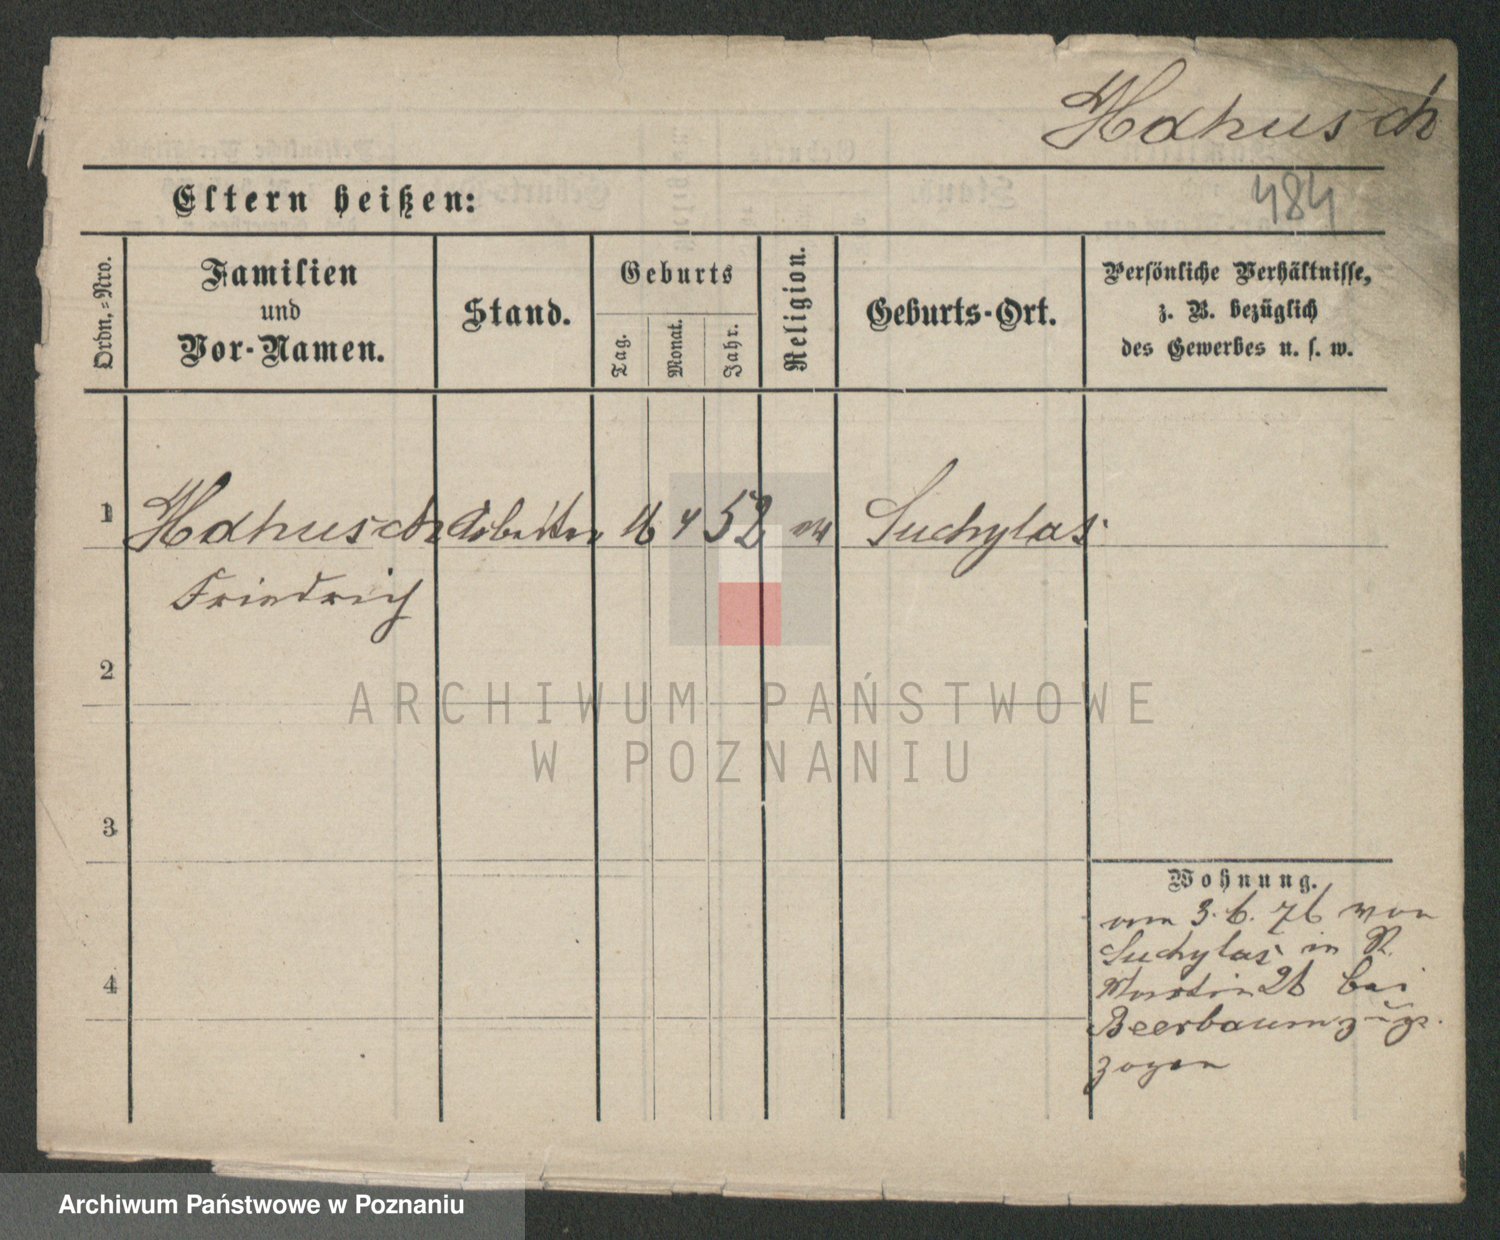 Hahusch
484
Eltern heißen:
Ordn.=Nro.
Familien
und
Vor-Namen.
Stand.
Geburts
Tag.
Monat.
Jahr.
Religion.
Geburts-Ort.
Persönliche Verhältnisse,
z. B. bezüglich
des Gewerbes u. s. w.
1 Hahusch Arbeiter 16 4 52 ev Suchylas
Friedrich
2
ARCHIWUM PAŃSTWOWE
W POZNANIU
3
Wohnung.
vom 3. 6. 76 von
Suchylas in St.
4
Martin 26 bei
Beerbaum zuge-
zogen
Archiwum Państwowe w Poznaniu